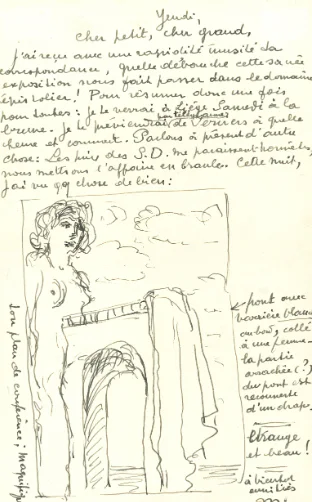 Jeudi,
Cher petit, cher grand,
J'ai reçu avec une rapidité inusitée ta
correspondance, quelle débauche cette sacrée
exposition nous fait passer dans le domaine
épistolier! Pour résumer donc une fois
pour toutes: Je te verrai à Liège Samedi à la
brune. Je te préviendrai de Verviers à quelle
heure et comment. Parlons à présent d'autre
chose: Les prix des S.D. me paraissent honnêtes,
nous mettons l'affaire en branle. Cette nuit,
j'ai vu qq chose de bien:
pont avec
barrière blanche
au bord, collé
à une femme
la partie
arrachée (?)
du pont est
recouverte
d'un drap.
Etrange
et beau!
à bientôt
Ton plan de conférence; magnifique